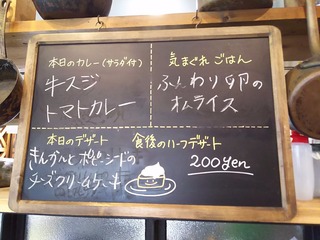 本日のカレー(サラダ付)
牛スジ
トマトカレー
気まぐれごはん
ふんわり卵の
オムライス
本日のデザート
きんかんとポピーシードの
チーズクリームケーキ
食後のハーフデザート
200yen